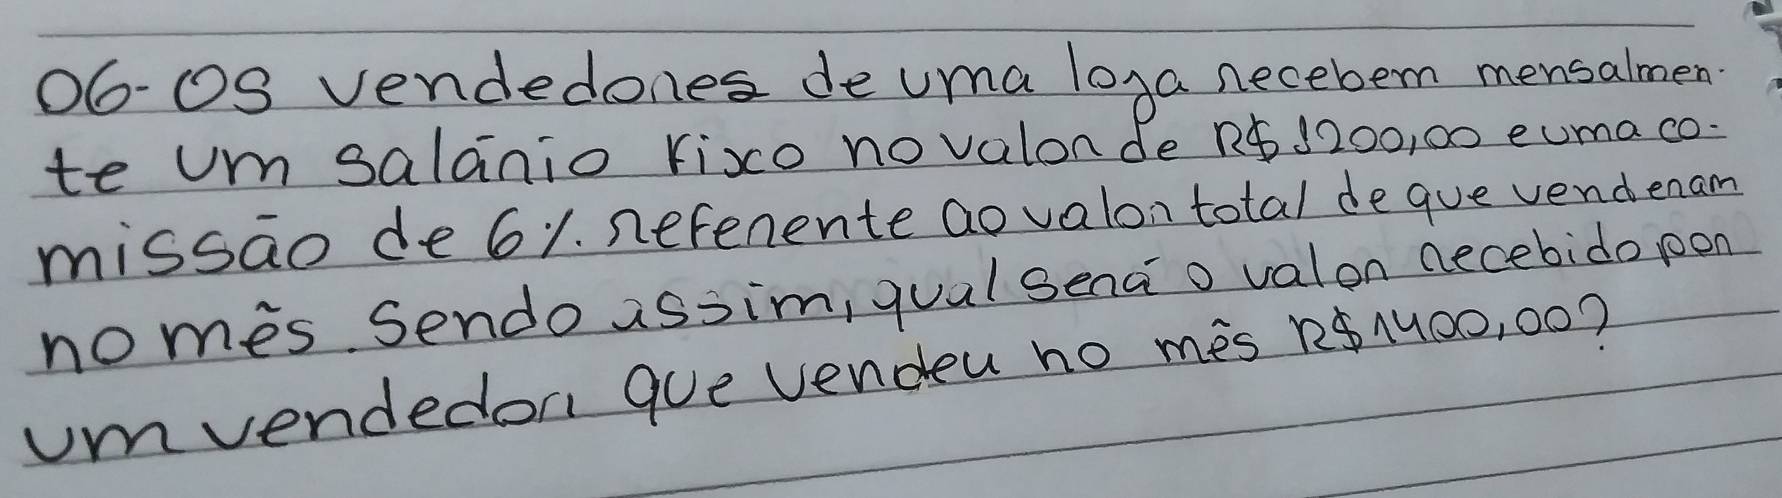 06-Os vendedores de uma loja recebem mensalmen-
te um salário fixo no valor de R$ 1200,00 e uma co-
missão de 6% referente ao valor total de que venderam
no mês. Sendo assim, qual será o valor recebido por
um vendedor que vendeu no mês R$ 1400,00?